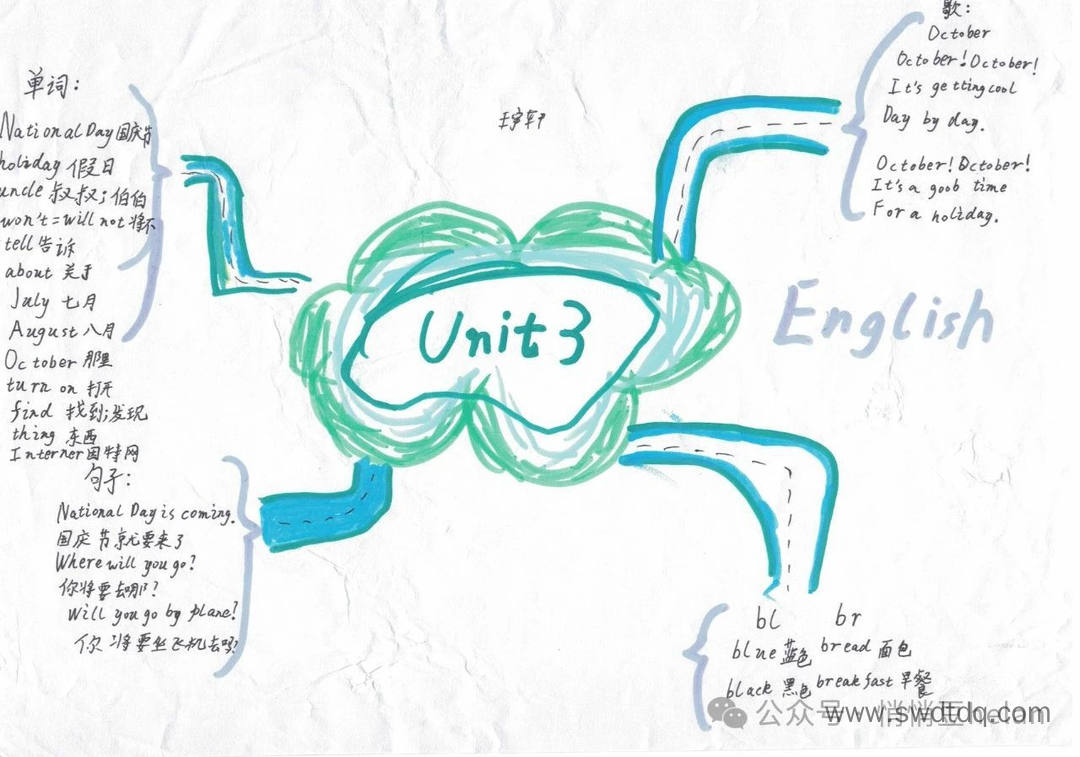 单词:
National Day 国庆节
holiday 假日
uncle 叔叔;伯伯
won't=will not 将不
tell 告诉
about 关于
July 七月
August 八月
October 那里
turn on 打开
find 找到;发现
thing 东西
Interner 因特网
句子:
National Day is coming.
国庆节就要来了
Where will you go?
你将要去哪?
Will you go by plane?
你将要坐飞机去吗?
Unit 3
歌:
October
October!October!
It's getting cool
Day by day.
October!October!
It's a goob time
For a holiday.
English
bl br
blue 蓝色 bread 面包
black 黑色 breakfast 早餐
公众号
www.swdtdq.com